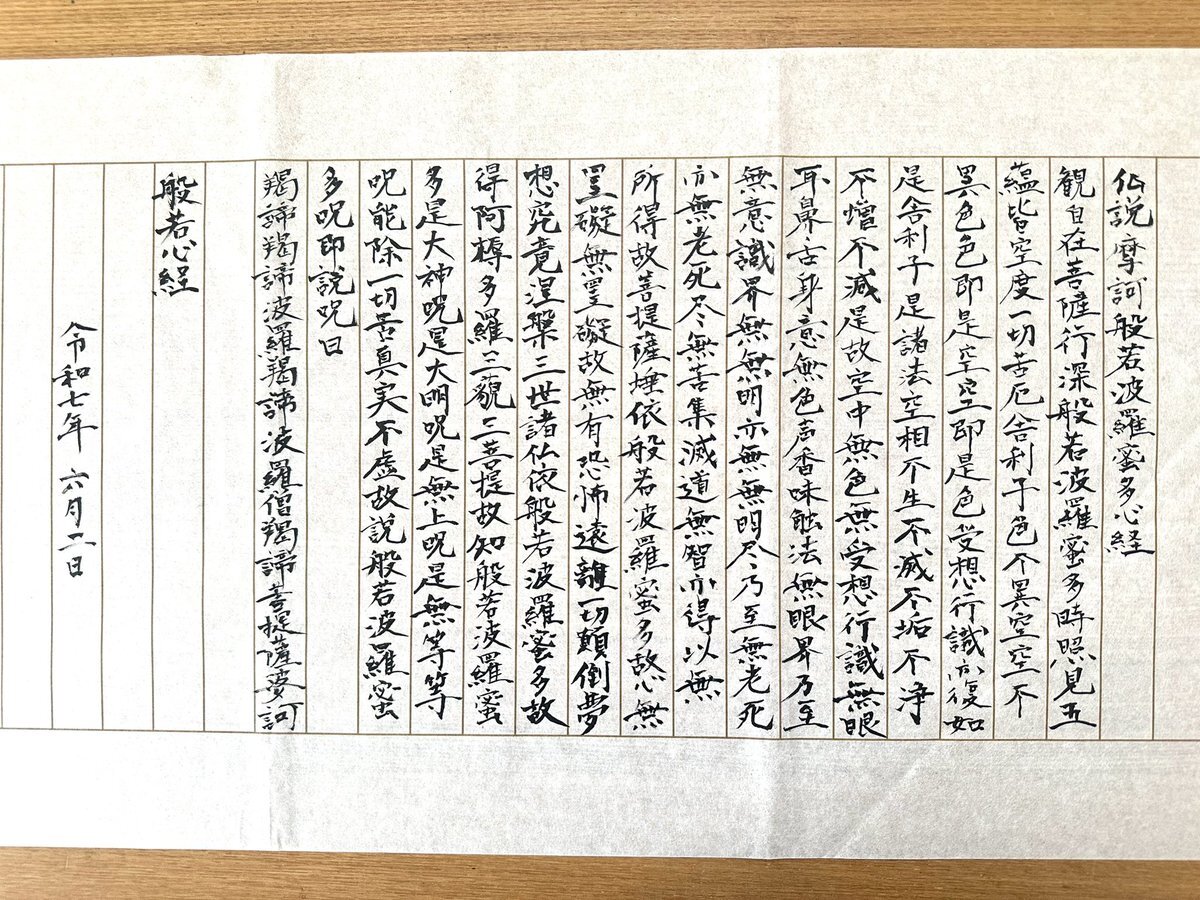 仏説摩訶般若波羅蜜多心経
観自在菩薩行深般若波羅蜜多時照見五
蘊皆空度一切苦厄舎利子色不異空空不
異色色即是空空即是色受想行識亦復如
是舎利子是諸法空相不生不滅不垢不浄
不増不減是故空中無色無受想行識無眼
耳鼻舌身意無色声香味触法無眼界乃至
無意識界無無明亦無無明尽乃至無老死
亦無老死尽無苦集滅道無智亦得以無
所得故菩提薩埵依般若波羅蜜多故心無
罣礙無罣礙故無有恐怖遠離一切顛倒夢
想究竟涅槃三世諸仏依般若波羅蜜多故
得阿耨多羅三藐三菩提故知般若波羅蜜
多是大神呪是大明呪是無上呪是無等等
呪能除一切苦真実不虚故説般若波羅蜜
多呪即説呪曰
羯諦羯諦波羅羯諦波羅僧羯諦菩提薩婆訶
般若心経
令和七年 六月二日